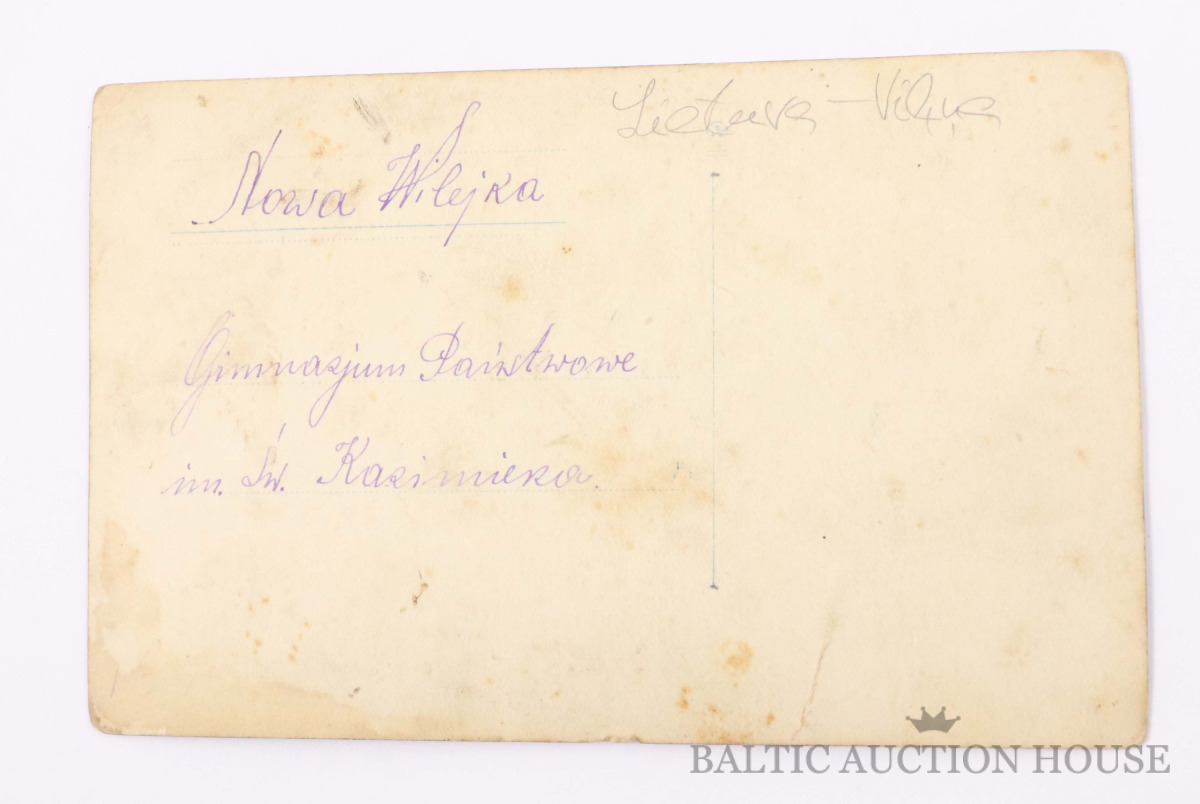 Lietuva – Viļņa
Nowa Wilejka
Gimnazjum Państwowe
im. Św. Kazimierza.
BALTIC AUCTION HOUSE